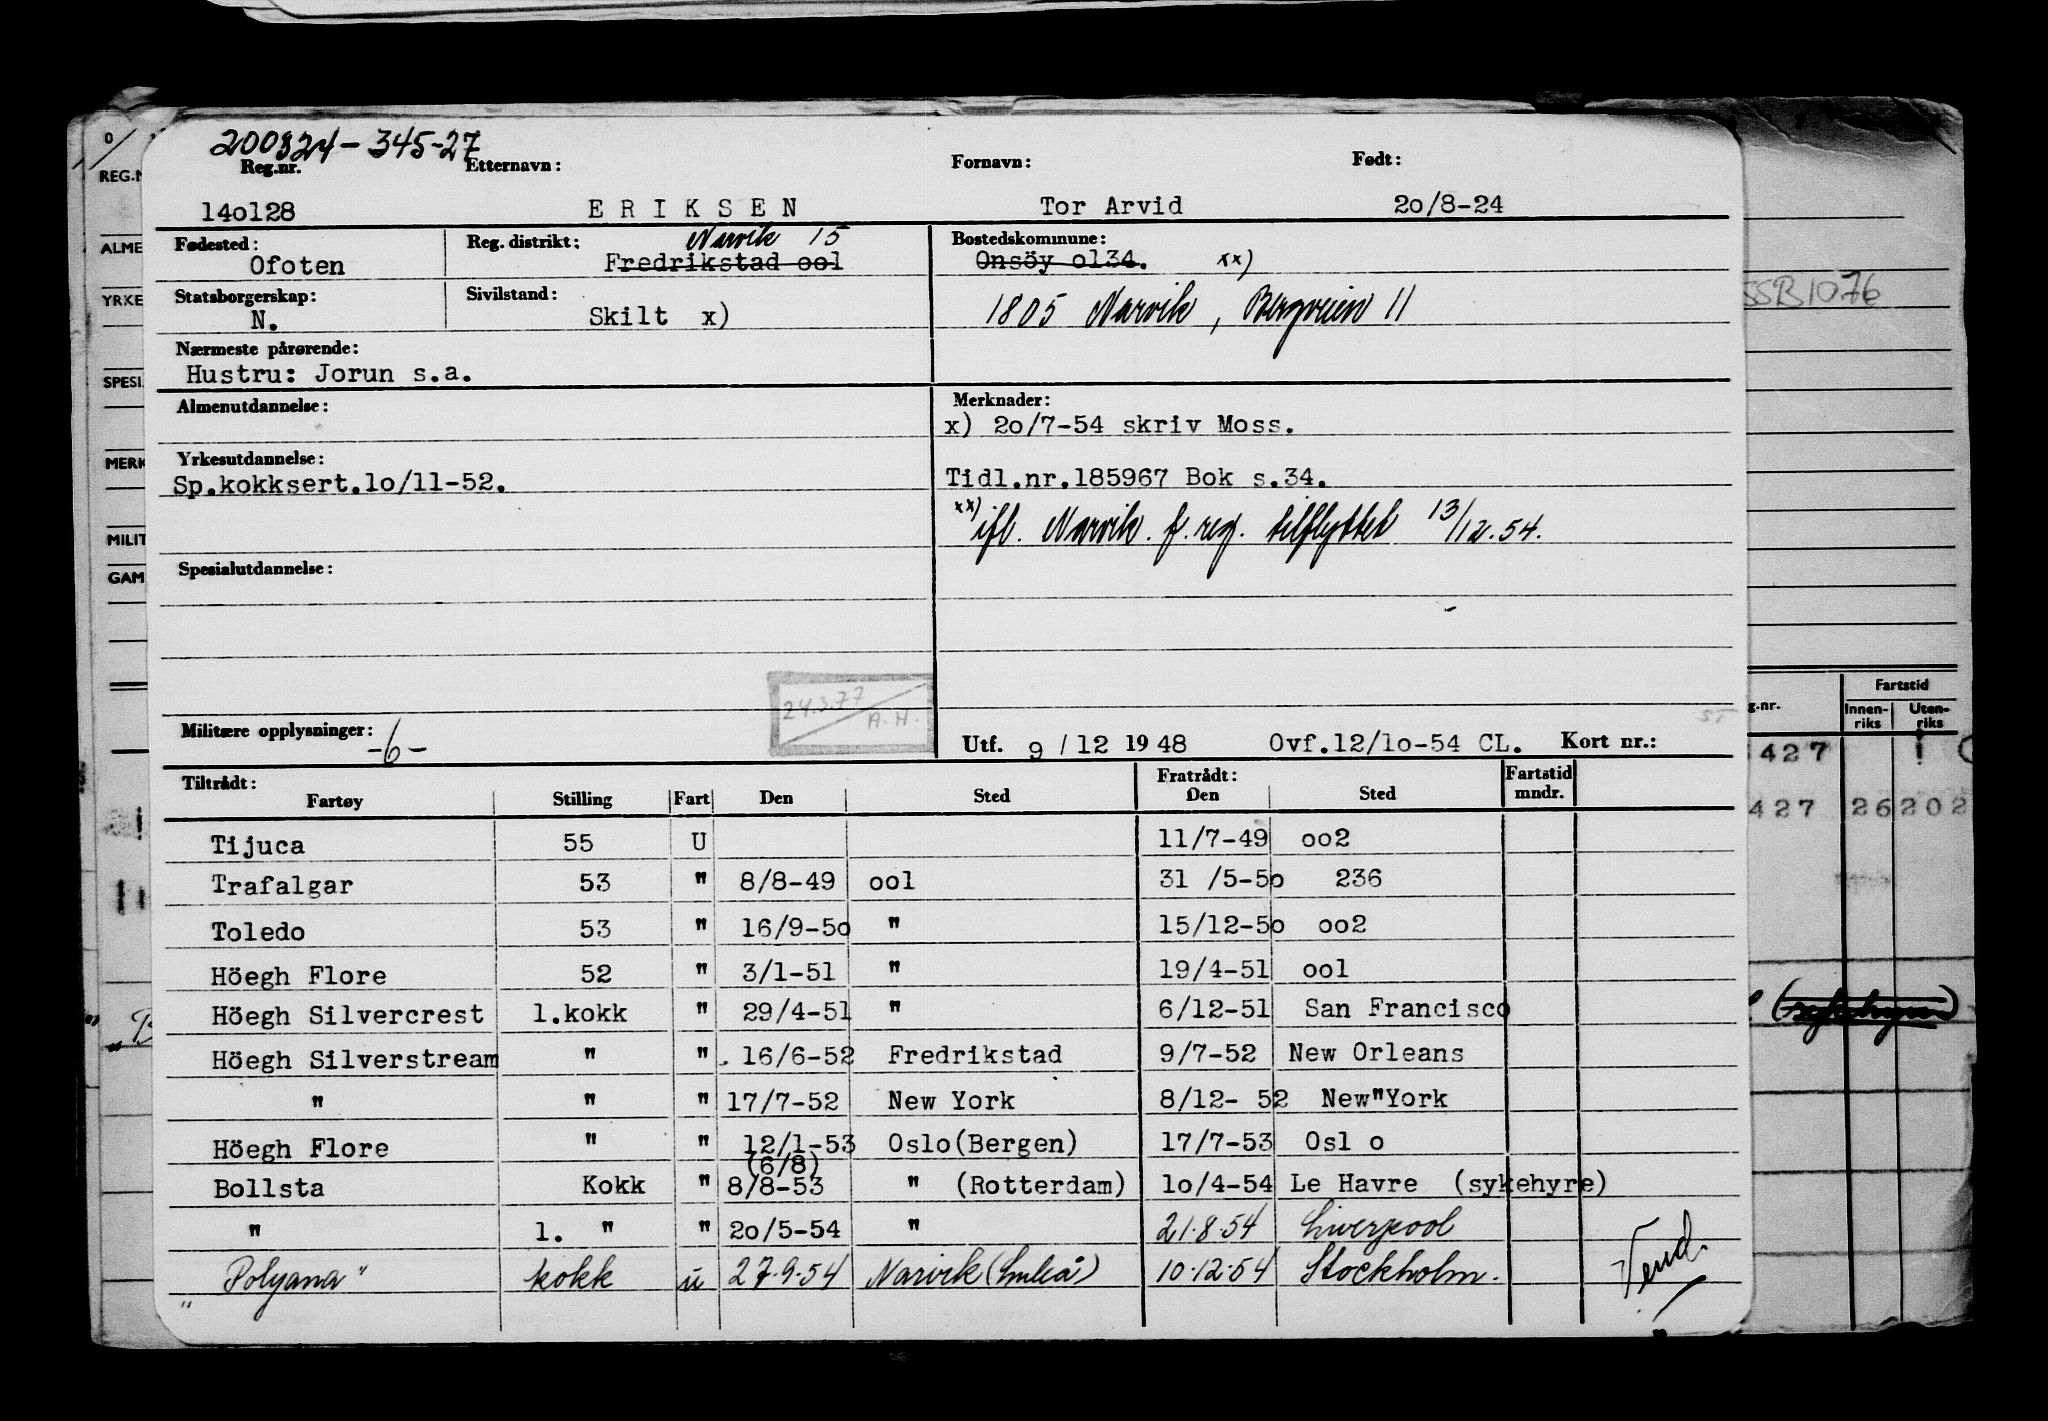 200824-345-27
Reg.nr. Etternavn: Fornavn: Født:
14o128 E R I K S E N Tor Arvid 2o/8-24
Fødested: Reg. distrikt: Narvik 15 Bostedskommune:
Ofoten Fredrikstad ool Onsöy o134. xx)
Statsborgerskap: Sivilstand: 1805 Narvik, Bergveien 11
N. Skilt x)
Nærmeste pårørende:
Hustru: Jorun s.a.
Almenutdannelse: Merknader:
x) 2o/7-54 skriv Moss.
Yrkesutdannelse:
Sp.kokksert.lo/11-52. Tidl.nr.185967 Bok s.34.
xx) ifl. Narvik f. reg. tilflyttet 13/12.54.
Spesialutdannelse:
24.3.77
A.H.
Militære opplysninger: -6- Utf. 9 / 12 1948 Ovf.12/lo-54 CL. Kort nr.:
Tiltrådt: Fratrådt: Fartstid
Fartøy Stilling Fart Den Sted Den Sted mndr.
Tijuca 55 U 11/7-49 oo2
Trafalgar 53 " 8/8-49 ool 31 /5-5o 236
Toledo 53 " 16/9-5o " 15/12-5o oo2
Höegh Flore 52 " 3/1-51 " 19/4-51 ool
Höegh Silvercrest l.kokk " 29/4-51 " 6/12-51 San Francisco
Höegh Silverstream " " 16/6-52 Fredrikstad 9/7-52 New Orleans
" " " 17/7-52 New York 8/12- 52 New"York
Höegh Flore " " 12/1-53 Oslo(Bergen) 17/7-53 Osl o
(6/8)
Bollsta Kokk " 8/8-53 " (Rotterdam) lo/4-54 Le Havre (sykehyre)
" l. " " 2o/5-54 " 21.8.54 Liverpool
"Polyana" kokk u 27.9.54 Narvik (Luleå) 10.12.54 Stockholm.
Vend.
0
REG.N
ALME
YRKE
SPESI
MERK
MILIT
GAM
SSB1076
g.nr. Fartstid
Innen-riks Uten-riks
427
427 26 202